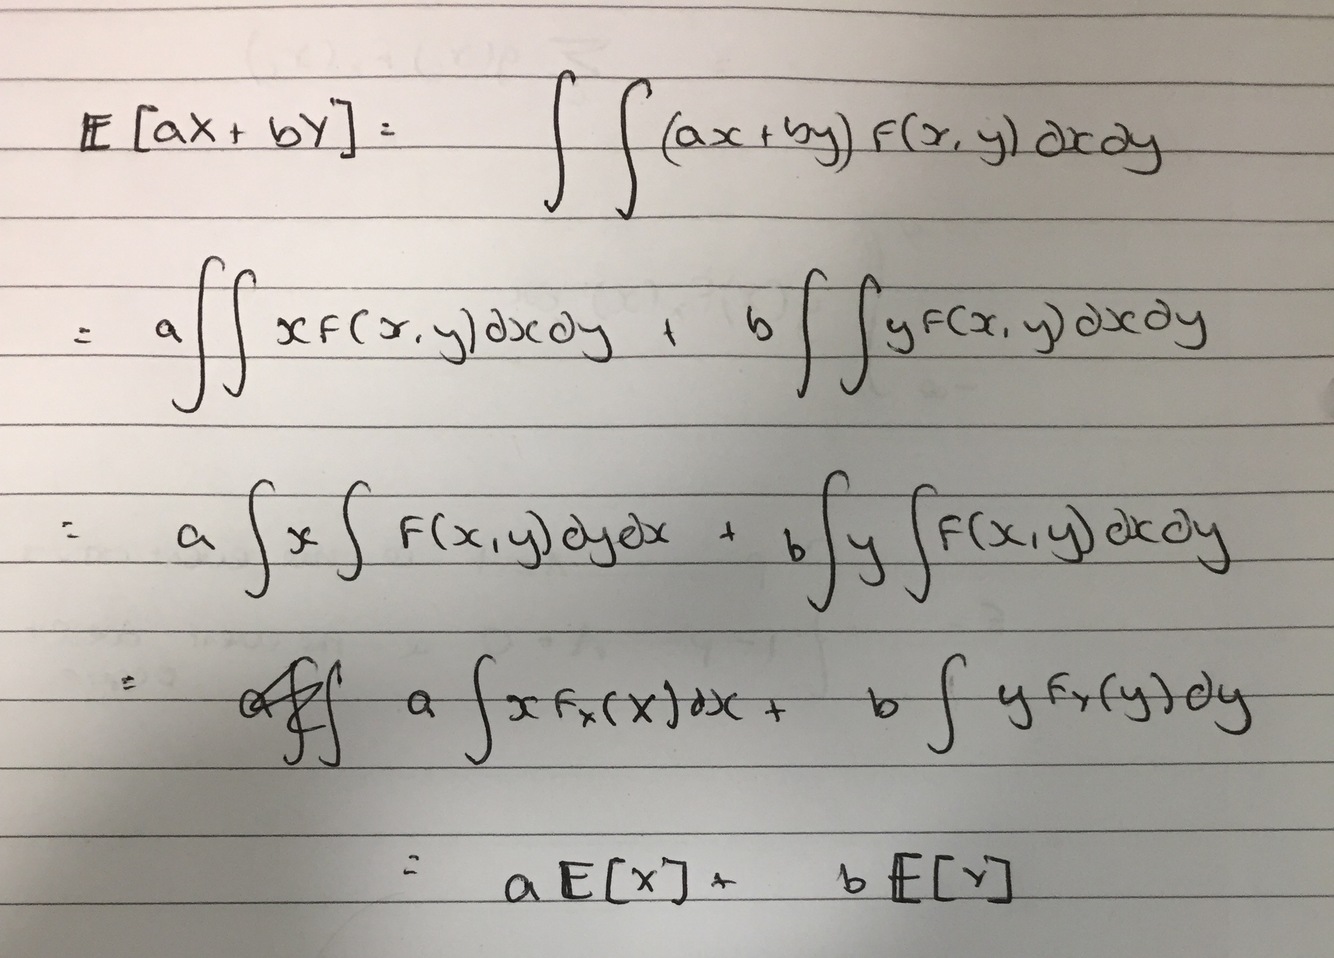 𝔼[aX + bY] = ∫∫(ax + by) F(x, y) dxdy
= a∫∫ xF(x, y)dxdy + b∫∫yF(x, y)dxdy
= a∫x∫ F(x,y)dydx + b∫y∫F(x,y)dxdy
= a∫xFₓ(x)dx + b∫ yF_Y(y)dy
= a𝔼[X] + b𝔼[Y]